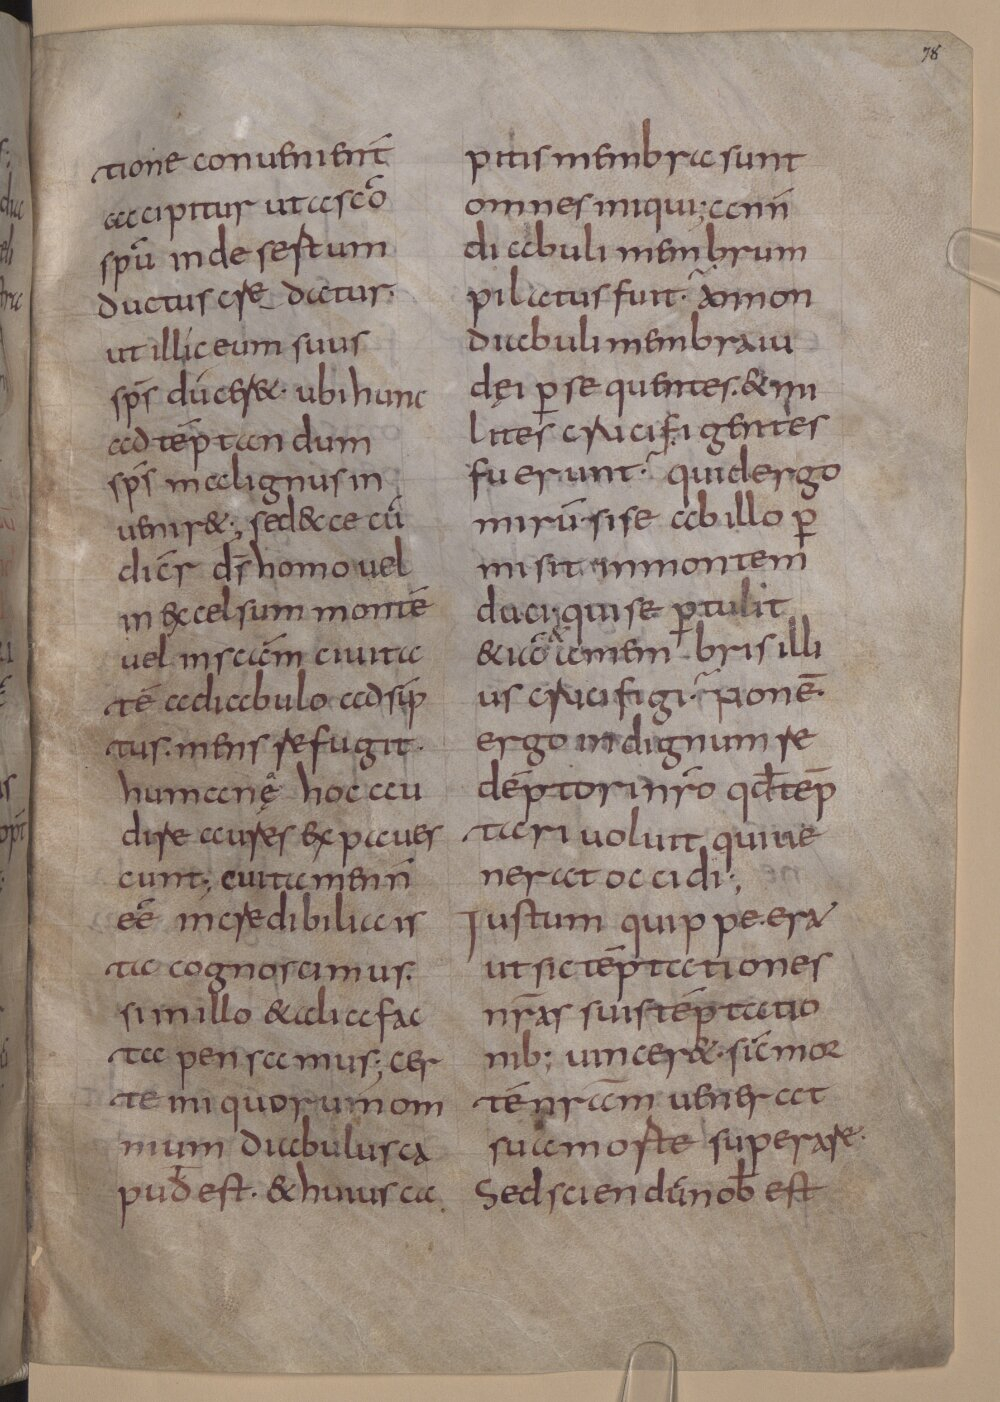 78
tione conuenient̄
accipitur ut a sc̄o
spū in desertum
ductus esse dictur.
ut illic eum suus
sps̄ duceret. ubi hunc
ad tēptandum
sps̄ malignus in
uenir&; sed ecce cū
dicr̄ ds̄ homo uel
in excelsum montē
uel in scām ciuita
tē a diabulo adsūp
tus. mens refugit.
humanę hoc au
dire aures expaues
cunt; cui tamen n̄
eē incredibilia is
ta cognoscimus.
si in illo & alia fac
ta pensamus; cer
te iniquorum om
nium diabulus ca
pud est. & huius ca
pitis membra sunt
omnes iniqui; an n̄
diabuli membrum
pilatus fuit. an non
diabuli membra iu
dęi ꝑsequentes. & mi
lites crucifigentes
fuerunt. quid ergo
mirū si se ab illo ꝑ
misit in montem
duci; qui se ꝑtulit
& iā a membris illi
us crucifigi. non ē
ergo indignum re
dēptori nr̄o qd̄ tēp
tari uoluit qui ue
nerat occidi;
Iustum quippe era
ut sic tēptationes
nr̄as suis tēptatio
nib; uincer&. sic mor
tē nr̄am uenerat
sua morte superare.
Sed sciendū nob̄ est